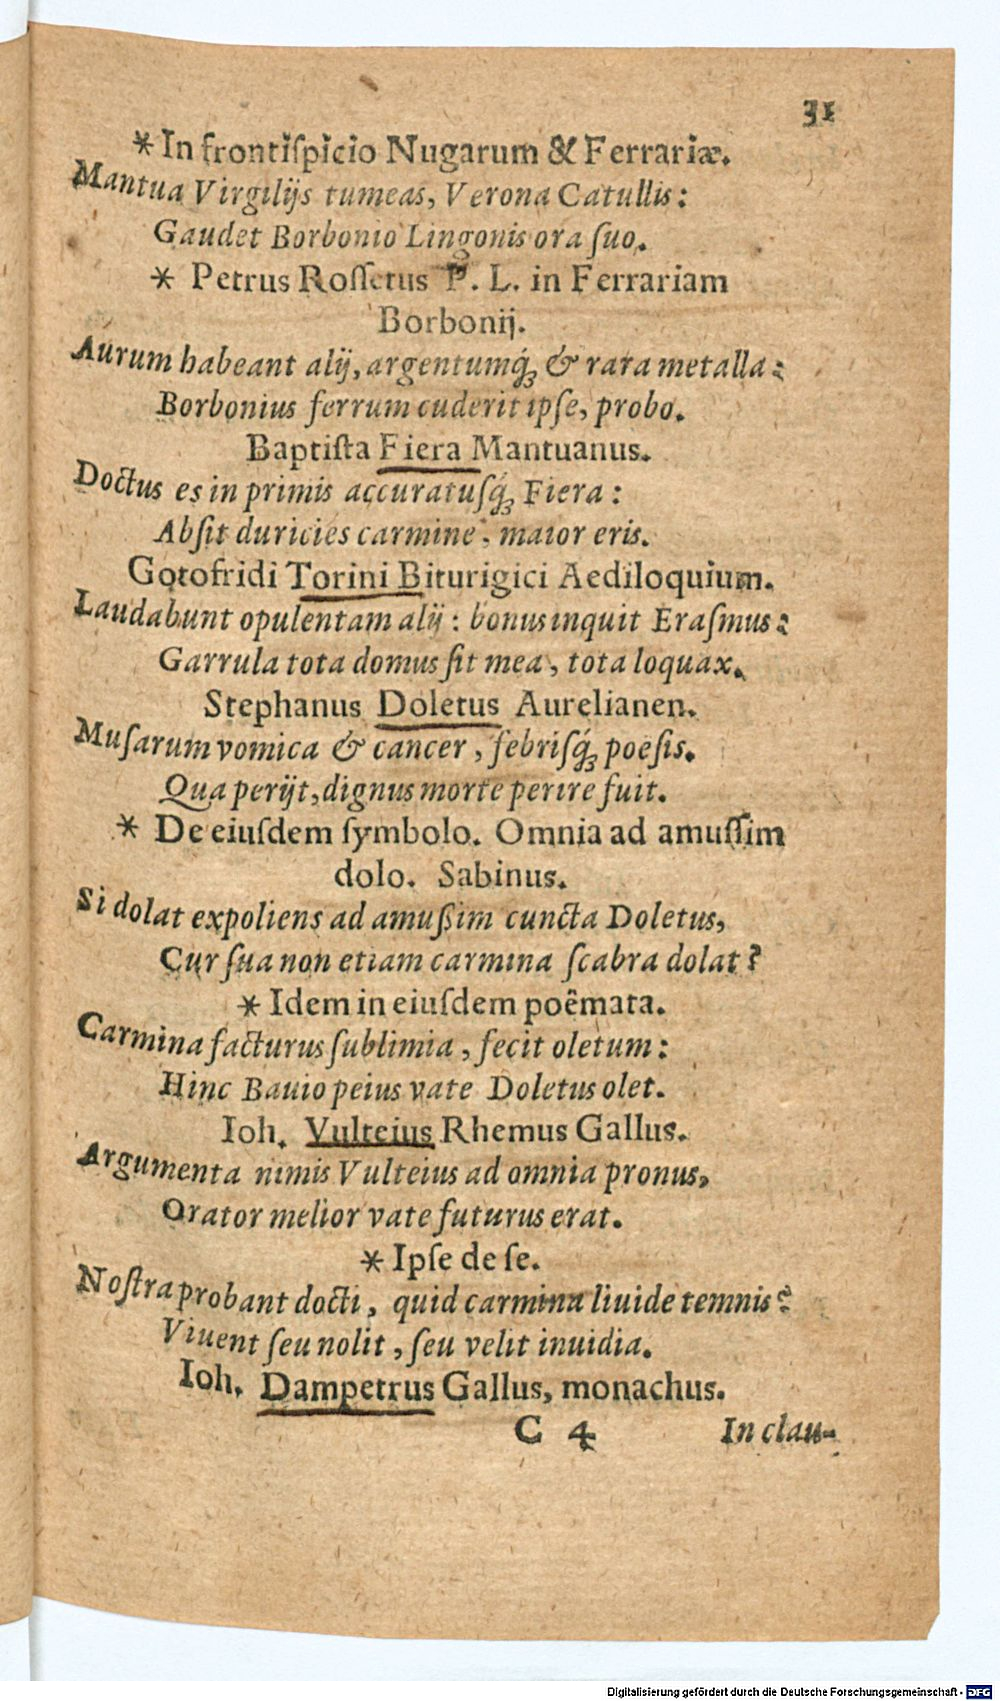 31
* In frontispicio Nugarum & Ferrariæ.
Mantua Virgilijs tumeas, Verona Catullis:
Gaudet Borbonio Lingonis ora suo.
* Petrus Rossetus P. L. in Ferrariam
Borbonij.
Aurum habeant alij, argentumq́; & rara metalla:
Borbonius ferrum cuderit ipse, probo.
Baptista Fiera Mantuanus.
Doctus es in primis accuratusq́; Fiera:
Absit duricies carmine, maior eris.
Gotofridi Torini Biturigici Aediloquium.
Laudabunt opulentam alij: bonus inquit Erasmus:
Garrula tota domus sit mea, tota loquax.
Stephanus Doletus Aurelianen.
Musarum vomica & cancer, febrisq́; poesis.
Qua perijt, dignus morte perire fuit.
* De eiusdem symbolo. Omnia ad amussim
dolo. Sabinus.
Si dolat expoliens ad amußim cuncta Doletus,
Cur sua non etiam carmina scabra dolat?
* Idem in eiusdem poêmata.
Carmina facturus sublimia, fecit oletum:
Hinc Bauio peius vate Doletus olet.
Ioh. Vulteius Rhemus Gallus.
Argumenta nimis Vulteius ad omnia pronus,
Orator melior vate futurus erat.
* Ipse de se.
Nostra probant docti, quid carmina liuide temnis?
Viuent seu nolit, seu velit inuidia.
Ioh. Dampetrus Gallus, monachus.
C 4 In clau-
Digitalisierung gefördert durch die Deutsche Forschungsgemeinschaft - DFG